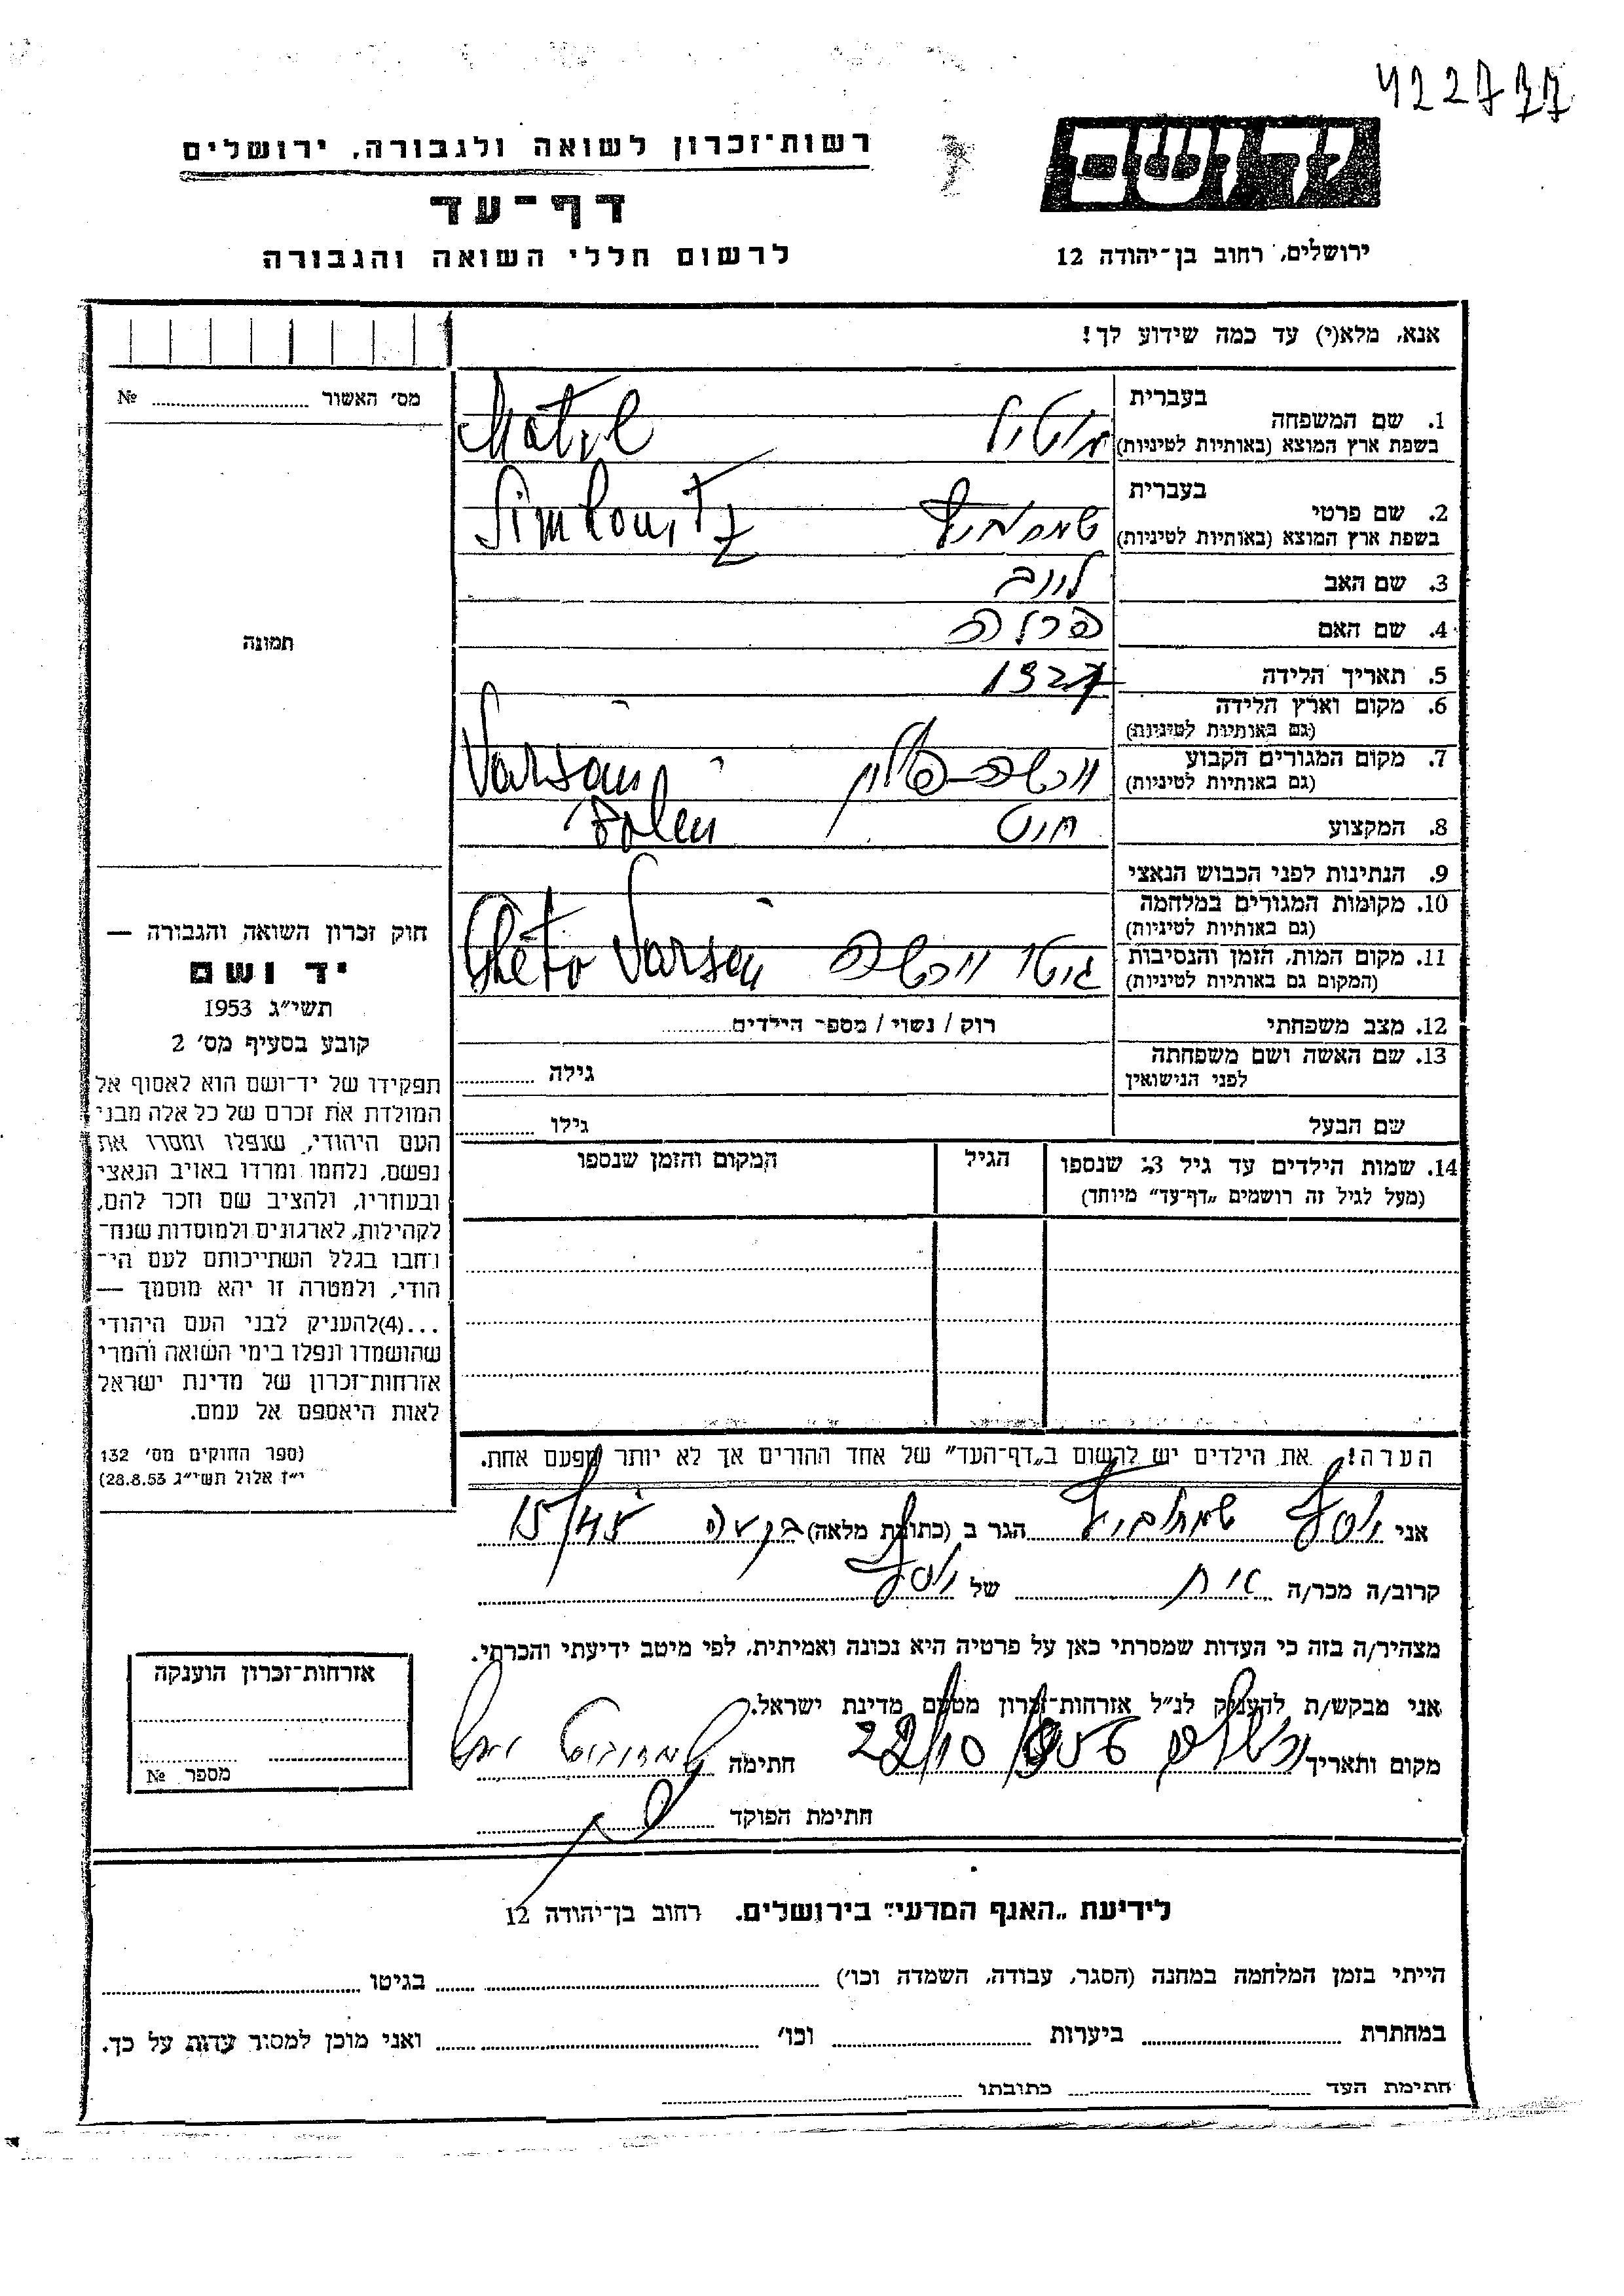 422777
רשות־זכרון לשואה ולגבורה, ירושלים
דף־עד
לרשום חללי השואה והגבורה
יד ושם
ירושלים, רחוב בן־יהודה 12
אנא, מלא(י) עד כמה שידוע לך!
מס׳ האשור № 
תמונה
1. שם המשפחה
בעברית
בשפת ארץ המוצא (באותיות לטיניות)
Motyl
2. שם פרטי
בעברית
בשפת ארץ המוצא (באותיות לטיניות)
Simkovitz
3. שם האב
4. שם האם פרלה
5. תאריך הלידה 1927
6. מקום וארץ הלידה
(גם באותיות לטיניות)
7. מקום המגורים הקבוע ורשה־פולין Varsaui
(גם באותיות לטיניות)
Polen
8. המקצוע
9. הנתינות לפני הכבוש הנאצי
10. מקומות המגורים במלחמה
(גם באותיות לטיניות)
11. מקום המות, הזמן והנסיבות גיטו ורשה Gheto Varsaui
(המקום גם באותיות לטיניות)
12. מצב משפחתי רוק / נשוי / מספר הילדים
13. שם האשה ושם משפחתה גילה
לפני הנישואין
שם הבעל גילו
14. שמות הילדים עד גיל 18 שנספו הגיל המקום והזמן שנספו
(מעל לגיל זה רושמים „דף־עד״ מיוחד)
חוק זכרון השואה והגבורה —
יד ושם
תשי״ג 1953
קובע בסעיף מס׳ 2
תפקידו של יד־ושם הוא לאסוף אל
המולדת את זכרם של כל אלה מבני
העם היהודי, שנפלו ומסרו את
נפשם, נלחמו ומרדו באויב הנאצי
ובעוזריו, ולהציב שם וזכר להם,
לקהילות, לארגונים ולמוסדות שנח־
רחבו בגלל השתייכותם לעם הי־
הודי, ולמטרה זו יהא מוסמך —
...(4)להעניק לבני העם היהודי
שהושמדו ונפלו בימי השואה והמרי
אזרחות־זכרון של מדינת ישראל
לאות היאספם אל עמם.
(ספר החוקים מס׳ 132
י״ז אלול תשי״ג 28.8.53)
הערה! את הילדים יש לרשום ב„דף־העד״ של אחד ההורים אך לא יותר מפעם אחת.
אני יוסף הגר ב (כתובת מלאה) בקעה 15/45
קרוב/ה מכר/ה של יוסף
מצהיר/ה בזה כי העדות שמסרתי כאן על פרטיה היא נכונה ואמיתית, לפי מיטב ידיעתי והכרתי.
אני מבקש/ת להעניק לנ״ל אזרחות־זכרון מטעם מדינת ישראל.
מקום ותאריך ירושלים 22/10/956 חתימה
חתימת הפוקד
אזרחות־זכרון הוענקה
מספר №
לידיעת „האגף המדעי״ בירושלים. רחוב בן־יהודה 12
הייתי בזמן המלחמה במחנה (הסגר, עבודה, השמדה וכו׳) בגיטו
במחתרת ביערות וכו׳ ואני מוכן למסור עדות על כך.
חתימת העד כתובתו